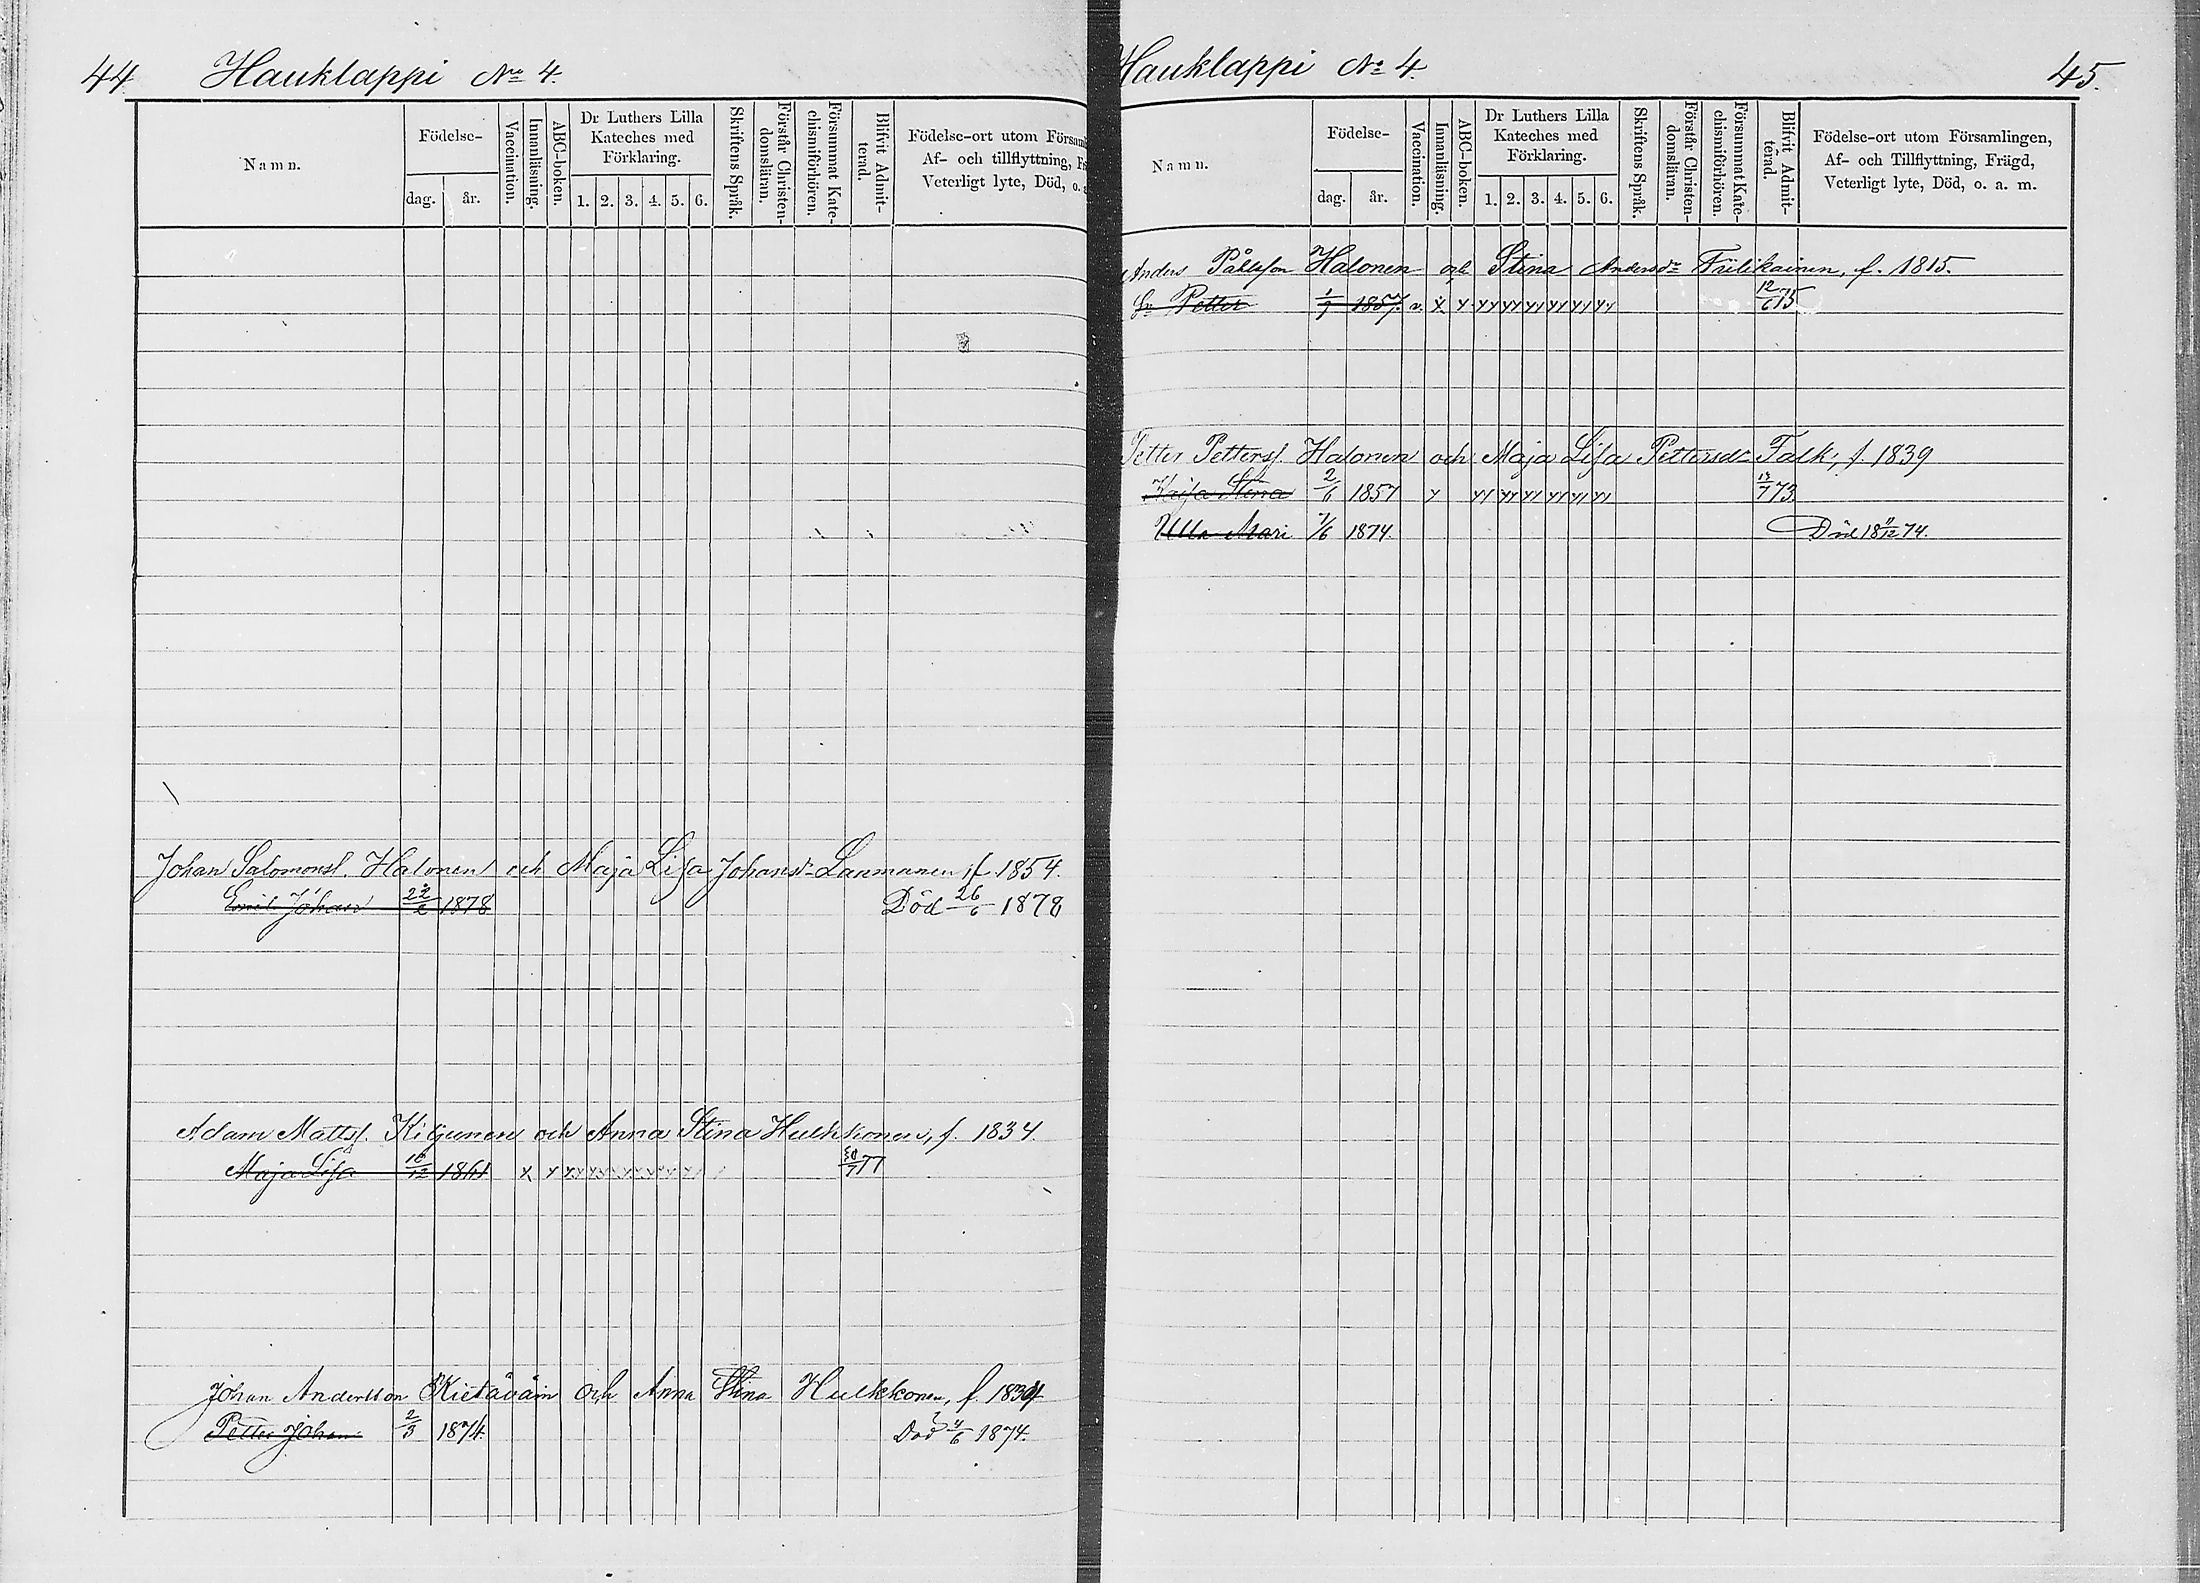 44. Hauklappi No 4.
Namn.
Födelse-
dag.
år.
Vaccination.
Innanläsning.
ABC-boken.
Dr Luthers Lilla
Kateches med
Förklaring.
1. 2. 3. 4. 5. 6.
Skriftens Språk.
Förstår Christen-
domsläran.
Försummat Kate-
chismiförhören.
Blifvit Admit-
terad.
Födelse-ort utom Församl
Af- och tillflyttning, Fr
Veterligt lyte, Död, o. a
Johan Salomonss. Halonen och Maja Lisa Johansdr Lanmanen, f. 1854.
Emil Johan 1878 Död 26/6 1878
Adam Mattss. Kiljunen och Anna Stina Hulkkonen, f. 1834.
Maja Lisa 16/12 1861 x x 77
Johan Andersson Kietäväin och Anna Stina Hulkkonen, f. 1834
Petter Johan 2/3 1874. Död 4/6 1874.
Hauklappi No 4 45.
Namn.
Födelse-
dag.
år.
Vaccination.
Innanläsning.
ABC-boken.
Dr Luthers Lilla
Kateches med
Förklaring.
1. 2. 3. 4. 5. 6.
Skriftens Språk.
Förstår Christen-
domsläran.
Försummat Kate-
chismiförhören.
Blifvit Admit-
terad.
Födelse-ort utom Församlingen,
Af- och Tillflyttning, Frägd,
Veterligt lyte, Död, o. a. m.
Anders Pålsson Halonen och Stina Andersdr Fülikainen, f. 1815.
Petter 1/7 1857. v. x y yy yy yy yy yy yy 12/6 75
Petter Petterss. Halonen och Maja Lisa Pettersdr Falk, f. 1839
Kaisa Stina 2/6 1857 y yy yy yy yy yy yy 73.
Ulla Mari 7/6 1874. Död 18 11/12 74.